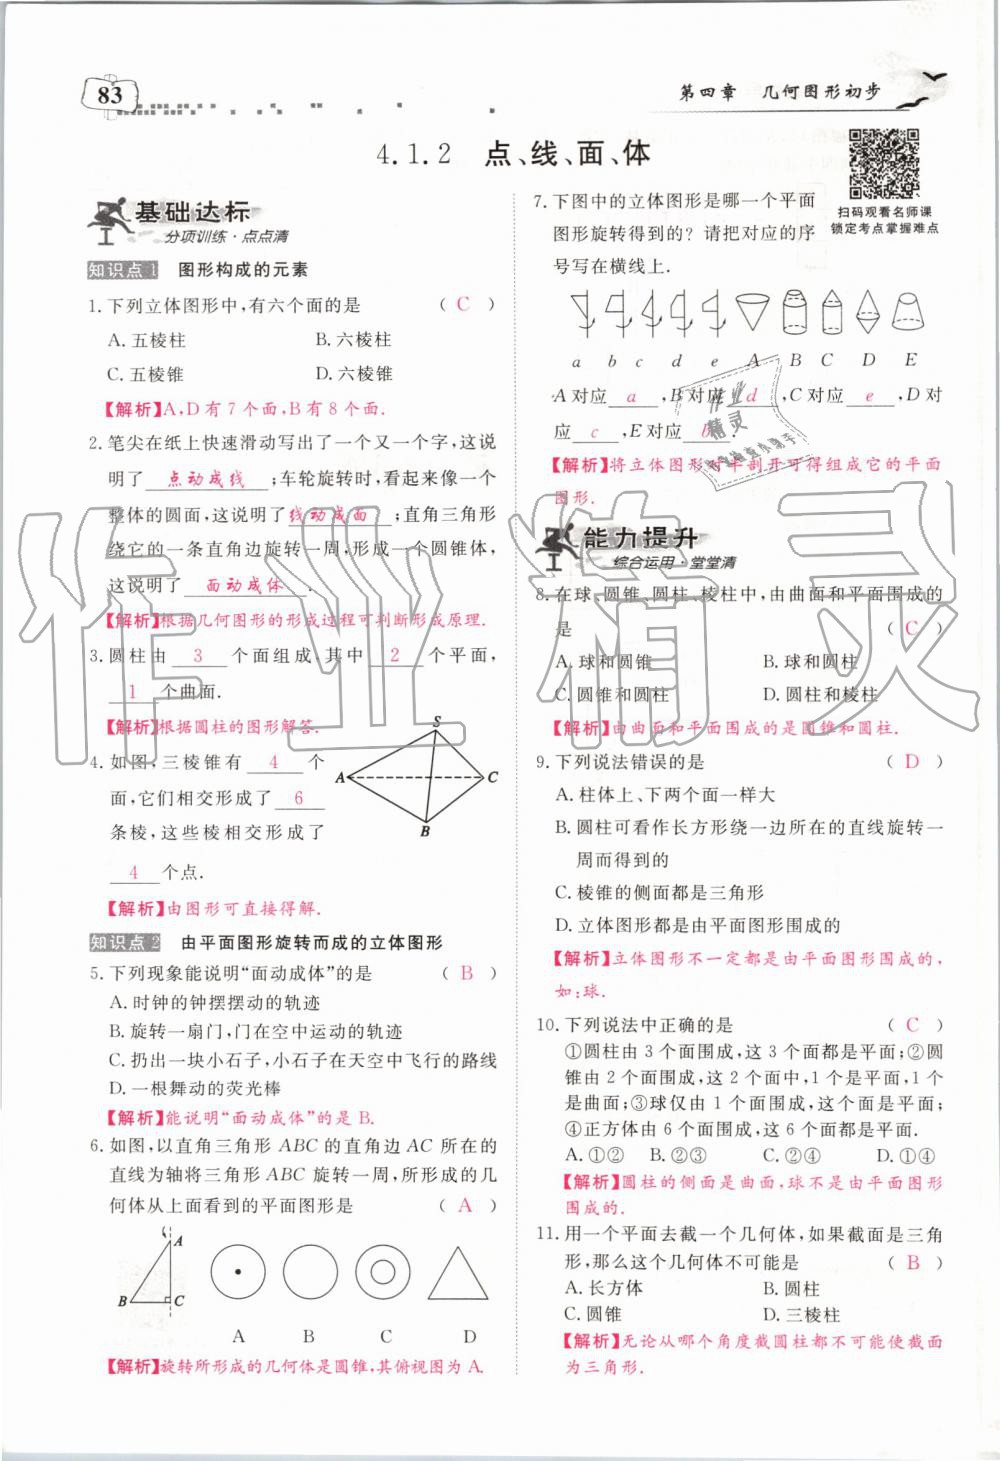 83
第四章 几何图形初步
4.1.2 点、线、面、体
基础达标
分项训练·点点清
知识点1 图形构成的元素
1.下列立体图形中,有六个面的是 ( C )
A.五棱柱 B.六棱柱
C.五棱锥 D.六棱锥
【解析】A,D有7个面,B有8个面.
2.笔尖在纸上快速滑动写出了一个又一个字,这说
明了 点动成线 ;车轮旋转时,看起来像一个
整体的圆面,这说明了 线动成面 ;直角三角形
绕它的一条直角边旋转一周,形成一个圆锥体,
这说明了 面动成体 .
【解析】根据几何图形的形成过程可判断形成原理.
3.圆柱由 3 个面组成,其中 2 个平面,
1 个曲面.
【解析】根据圆柱的图形解答.
4.如图,三棱锥有 4 个
面,它们相交形成了 6
条棱,这些棱相交形成了
4 个点.
S
A
C
B
【解析】由图形可直接得解.
知识点2 由平面图形旋转而成的立体图形
5.下列现象能说明“面动成体”的是 ( B )
A.时钟的钟摆摆动的轨迹
B.旋转一扇门,门在空中运动的轨迹
C.扔出一块小石子,小石子在天空中飞行的路线
D.一根舞动的荧光棒
【解析】能说明“面动成体”的是B.
6.如图,以直角三角形ABC的直角边AC所在的
直线为轴将三角形ABC旋转一周,所形成的几
何体从上面看到的平面图形是 ( A )
A
B C
A B C D
【解析】旋转所形成的几何体是圆锥,其俯视图为A.
扫码观看名师课
锁定考点掌握难点
7.下图中的立体图形是哪一个平面
图形旋转得到的?请把对应的序
号写在横线上.
a b c d e A B C D E
A对应 a ,B对应 d ,C对应 e ,D对
应 c ,E对应 b .
【解析】将立体图形对半剖开可得组成它的平面
图形.
能力提升
综合运用·堂堂清
8.在球、圆锥、圆柱、棱柱中,由曲面和平面围成的
是 ( C )
A.球和圆锥 B.球和圆柱
C.圆锥和圆柱 D.圆柱和棱柱
【解析】由曲面和平面围成的是圆锥和圆柱.
9.下列说法错误的是 ( D )
A.柱体上、下两个面一样大
B.圆柱可看作长方形绕一边所在的直线旋转一
周而得到的
C.棱锥的侧面都是三角形
D.立体图形都是由平面图形围成的
【解析】立体图形不一定都是由平面图形围成的,
如:球.
10.下列说法中正确的是 ( C )
①圆柱由3个面围成,这3个面都是平面;②圆
锥由2个面围成,这2个面中,1个是平面,1个
是曲面;③球仅由1个面围成,这个面是平面;
④正方体由6个面围成,这6个面都是平面.
A.①② B.②③ C.②④ D.①④
【解析】圆柱的侧面是曲面,球不是由平面图形
围成的.
11.用一个平面去截一个几何体,如果截面是三角
形,那么这个几何体不可能是 ( B )
A.长方体 B.圆柱
C.圆锥 D.三棱柱
【解析】无论从哪个角度截圆柱都不可能使截面
为三角形.
作业精灵